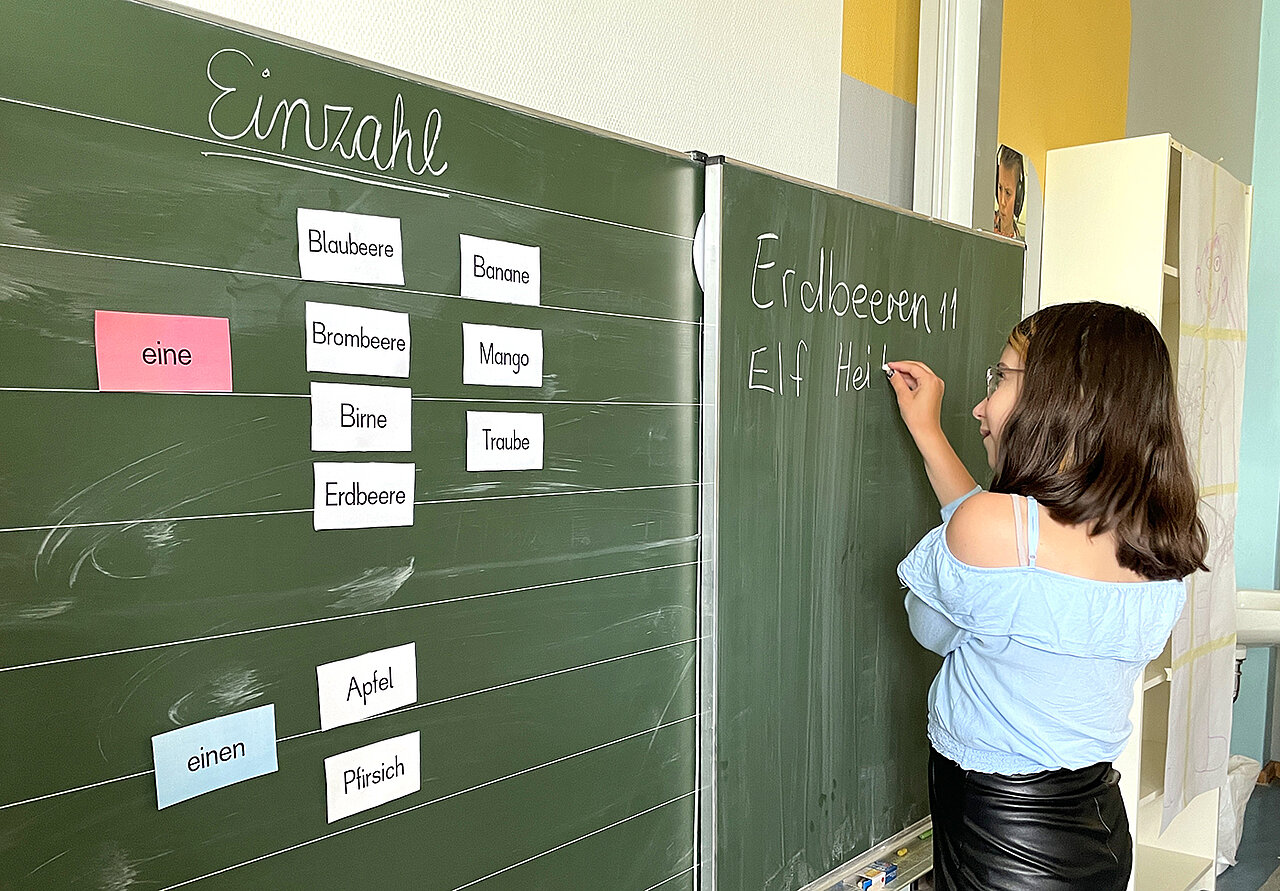 Einzahl
eine
Blaubeere
Brombeere
Birne
Erdbeere
Banane
Mango
Traube
einen
Apfel
Pfirsich
Erdbeeren 11
Elf